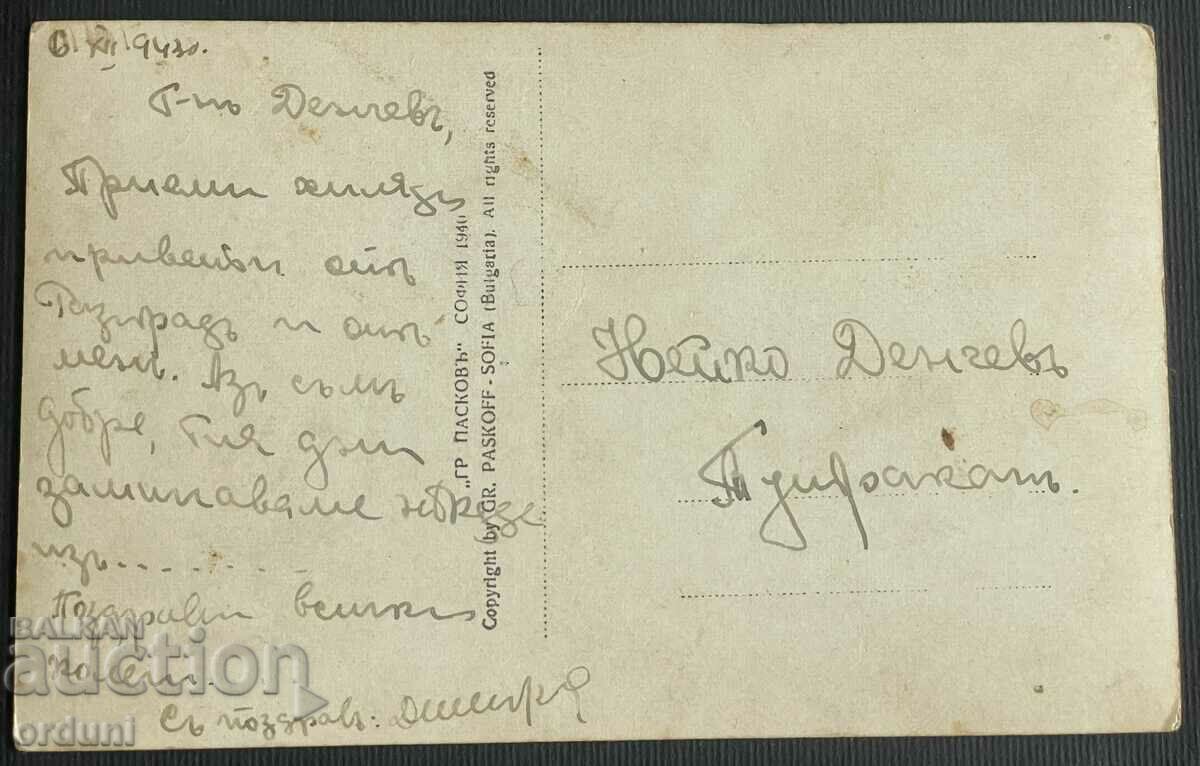 6/XII/943г.
Г-нъ Денчевъ,
Приеми хиляди
привети отъ
Разградъ и отъ
менъ. Азъ съмъ
добре, тия дни
заминаваме нѣкѫде
изъ........
Поздрави всички
колеги.
Съ поздравъ:
"ГР ПАСКОВЪ" СОФИЯ 1940
Copyright by GR. PASKOFF - SOFIA (Bulgaria). All rights reserved
Нейко Денчевъ
Тутраканъ.
BALKAN
auction
orduni